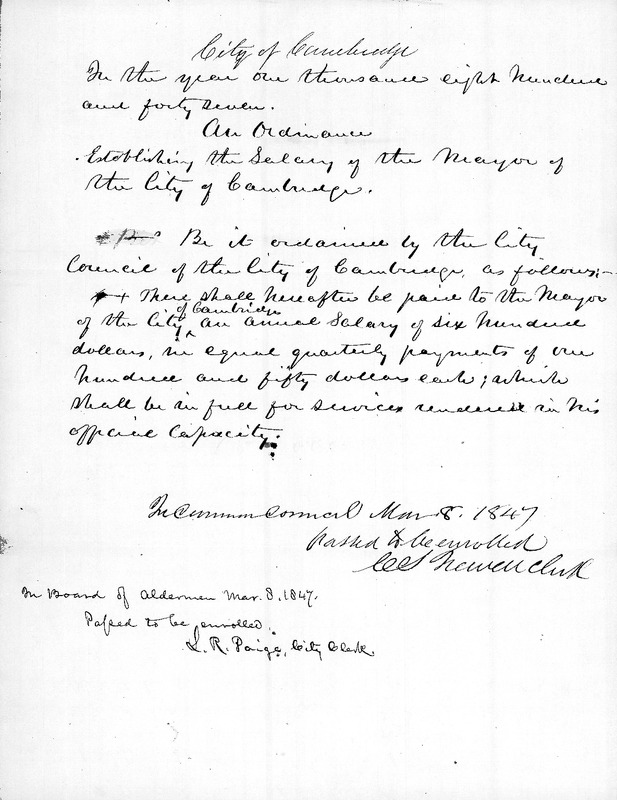 City of Cambridge
In the year one thousand eight hundred
and forty seven.
An Ordinance
Establishing the Salary of the Mayor of
the City of Cambridge.
Be it ordained by the City
Council of the City of Cambridge, as follows:-
There shall hereafter be paid to the Mayor
of the City of Cambridge an annual Salary of six hundred
dollars, in equal quarterly payments of one
hundred and fifty dollars each; which
shall be in full for services rendered in his
official capacity.
In Common Council Mar 8. 1847
passed to be enrolled
C S Newell Clerk
In Board of Aldermen Mar. 8, 1847.
Passed to be enrolled.
L. R. Paige, City Clerk